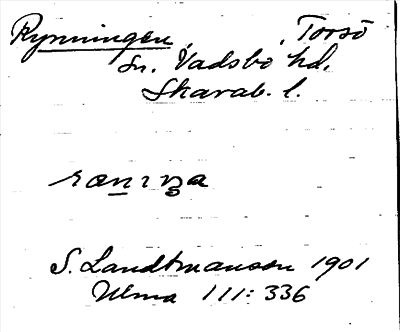 Rynningen, Torsö
sn. Vadsbo hd.
Skarab. l.
S. Landtmanson 1901
Ulma 111: 336